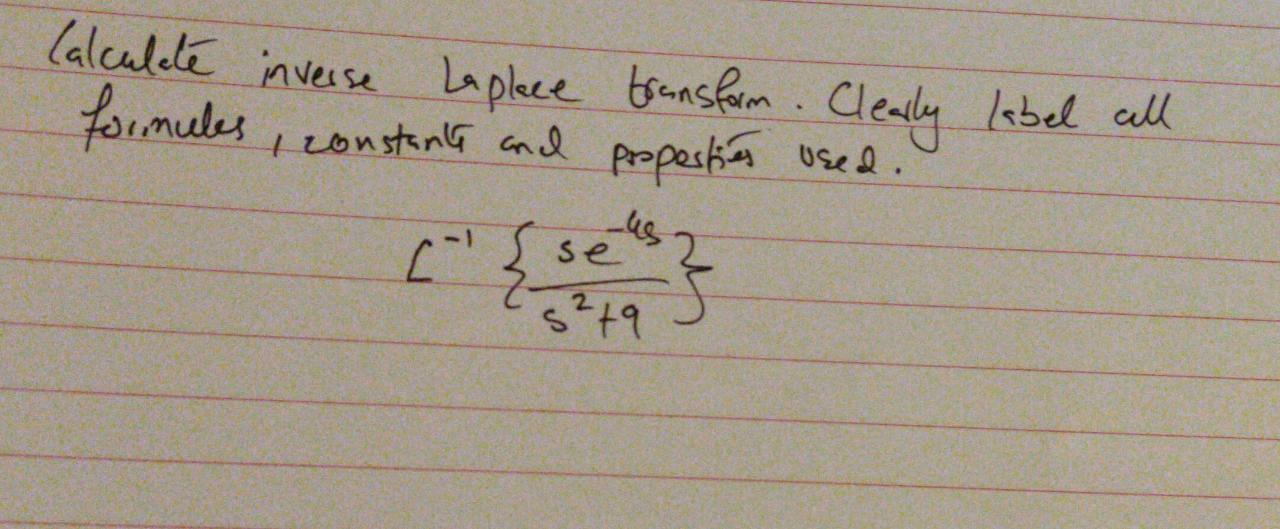 Calculate inverse Laplace transform. Clearly label all
formulas, constants and properties used.
L⁻¹ { se⁻⁴ˢ / s²+9 }